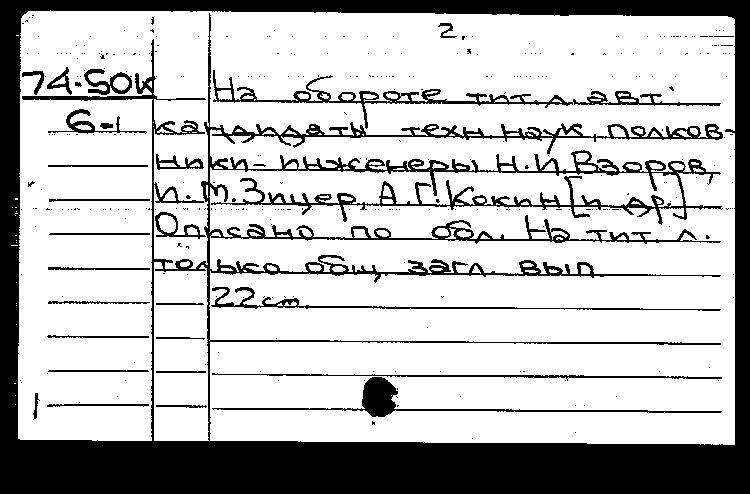 2.
74-50K На обороте тит. л. авт:
6-1 кандидаты техн. наук, полков-
ники-инженеры Н.И. Взоров,
И. М. Зицер, А. Г. Кокин [и др.]
Описано по обл. На тит. л.
только общ. загл. вып.
22 cm.
1